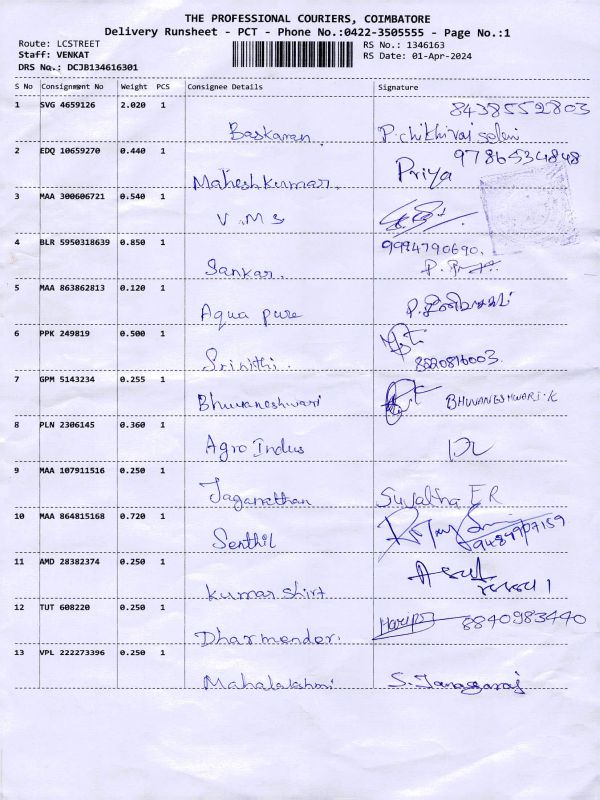 THE PROFESSIONAL COURIERS, COIMBATORE
Delivery Runsheet - PCT - Phone No.:0422-3505555 - Page No.:1
Route: LCSTREET RS No.: 1346163
Staff: VENKAT RS Date: 01-Apr-2024
DRS No.: DCJB134616301
S No Consignment No Weight PCS Consignee Details Signature
1 SVG 4659126 2.020 1 8438552803
Baskaran
2 EDQ 10659270 0.440 1 9786534848
Mahesh kumar. Priya
3 MAA 300606721 0.540 1
V.M.S
4 BLR 5950318639 0.850 1 9994790690.
Sankar.
5 MAA 863862813 0.120 1
Aqua pure
6 PPK 249819 0.500 1
Srinithi. 8220816003.
7 GPM 5143234 0.255 1 BHUVANESHWARI.K
Bhuvaneshwari
8 PLN 2306145 0.360 1
Agro Indus
9 MAA 107911516 0.250 1
Jaganathan Sujaltha E R
10 MAA 864815168 0.720 1
Senthil 9487907159
11 AMD 28382374 0.250 1
Kumar Shirt
12 TUT 608220 0.250 1 8840983440
Dharmender.
13 VPL 222273396 0.250 1
Mahalakshmi